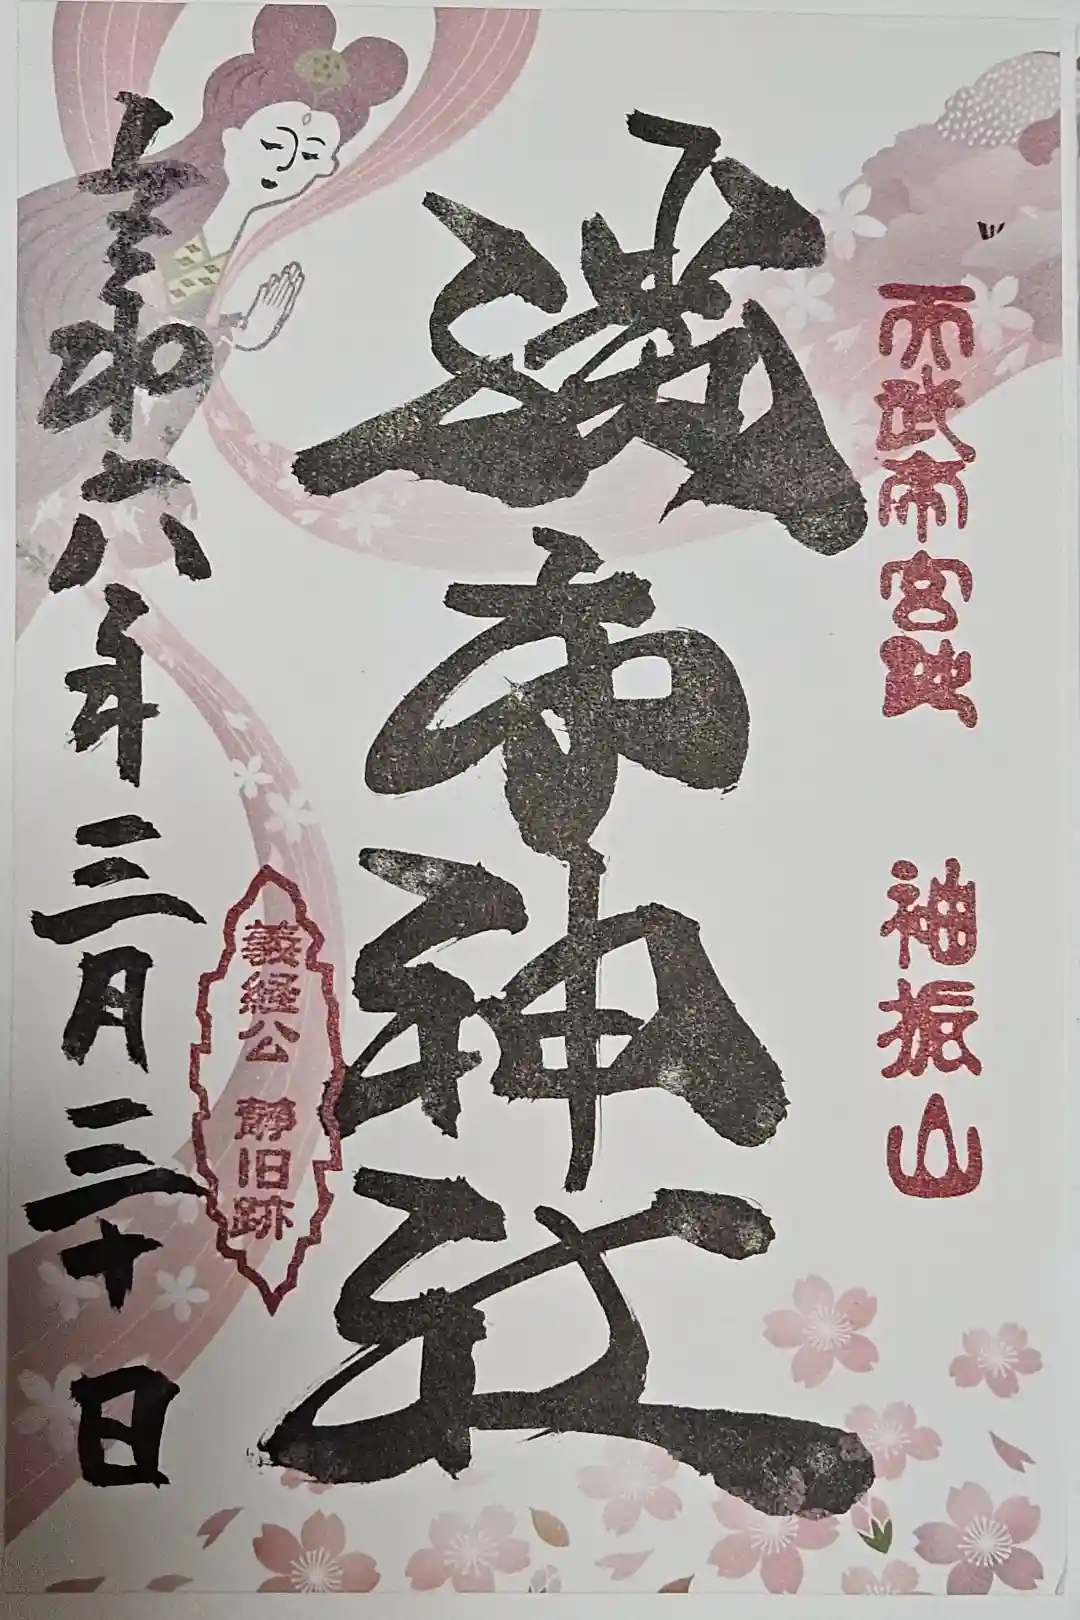 天武帝宮跡 袖振山
勝手神社
義経公 静旧跡
令和六年三月三十日